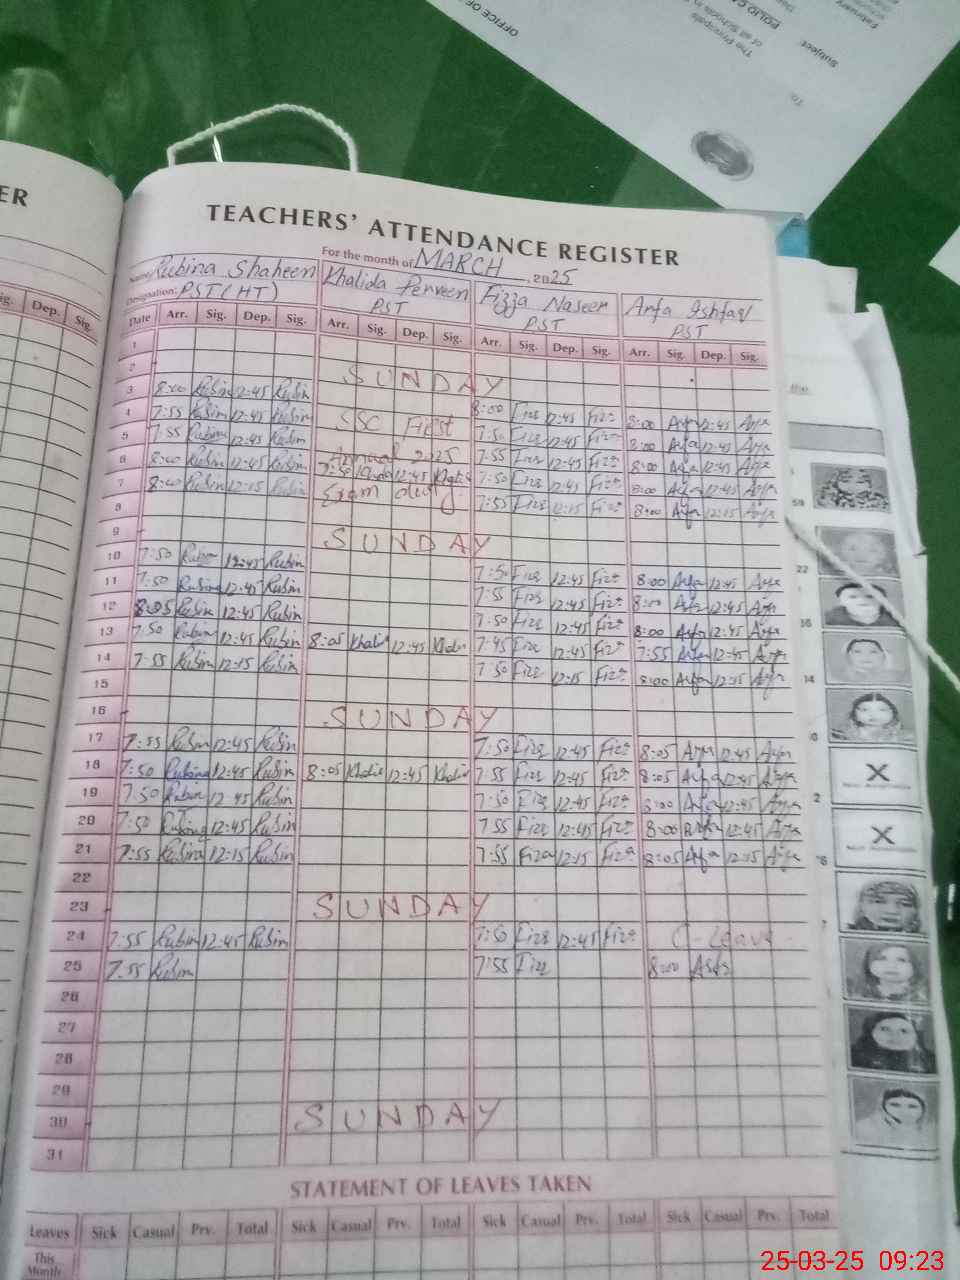 OFFICE OF
The Principals
of all Schools in
POLIO
February
Subject
To:
ER
ig. Dep. Sig.
TEACHERS' ATTENDANCE REGISTER
For the month of MARCH, 2025
Name: Rubina Shaheen Khalida Perveen Fizza Naseer Arfa Ishfaq
Designation: PST (HT) PST PST PST
Date Arr. Sig. Dep. Sig. Arr. Sig. Dep. Sig. Arr. Sig. Dep. Sig. Arr. Sig. Dep. Sig.
1
2 SUNDAY
3 8:00 Rubin 12:45 Rubin 8:00 Fizz 12:45 Fizz 8:00 Arfa 12:45 Arfa
4 7:55 Rubin 12:45 Rubin SSC First 7:50 Fizz 12:45 Fizz 8:00 Arfa 12:45 Arfa
5 7:55 Rubin 12:45 Rubin Annual 2025 7:55 Fizz 12:45 Fizz 8:00 Arfa 12:45 Arfa
6 8:00 Rubin 12:45 Rubin 7:50 12:45 7:50 Fizz 12:45 Fizz 8:00 Arfa 12:45 Arfa
7 8:00 Rubin 12:15 Rubin Exam duty 7:55 Fizz 12:15 Fizz 8:00 Arfa 12:15 Arfa
8
9 SUNDAY
10 7:50 Rubin 12:45 Rubin 7:50 Fizz 12:45 Fizz 8:00 Arfa 12:45 Arfa
11 7:50 Rubina 12:45 Rubin 7:55 Fizz 12:45 Fizz 8:00 Arfa 12:45 Arfa
12 8:05 Rubin 12:45 Rubin 7:50 Fizz 12:45 Fizz 8:00 Arfa 12:45 Arfa
13 7:50 Rubin 12:45 Rubin 8:05 Khalid 12:45 Khalid 7:45 Fizz 12:45 Fizz 7:55 Arfa 12:45 Arfa
14 7:55 Rubin 12:15 Rubin 7:50 Fizz 12:15 Fizz 8:00 Arfa 12:15 Arfa
15
16 SUNDAY
17 7:55 Rubin 12:45 Rubin 7:50 Fizz 12:45 Fizz 8:05 Arfa 12:45 Arfa
18 7:50 Rubina 12:45 Rubin 8:05 Khalid 12:45 Khalid 7:55 Fizz 12:45 Fizz 8:05 Arfa 12:45 Arfa
19 7:50 Rubin 12:45 Rubin 7:50 Fizz 12:45 Fizz 8:00 Arfa 12:45 Arfa
20 7:50 Rubina 12:45 Rubin 7:55 Fizz 12:45 Fizz 8:00 Arfa 12:45 Arfa
21 7:55 Rubina 12:15 Rubin 7:55 Fiza 12:15 Fiza 8:05 Arfa 12:15 Arfa
22
23 SUNDAY
24 7:55 Rubin 12:45 Rubin 7:50 Fizz 12:45 Fizz C-Leave
25 7:55 Rubin 7:55 Fizz 8:00 Arfa
26
27
28
29
30 SUNDAY
31
STATEMENT OF LEAVES TAKEN
Leaves Sick Casual Prv. Total Sick Casual Prv. Total Sick Casual Prv. Total Sick Casual Prv. Total
This
Month
59
22
16
14
2
25-03-25 09:23